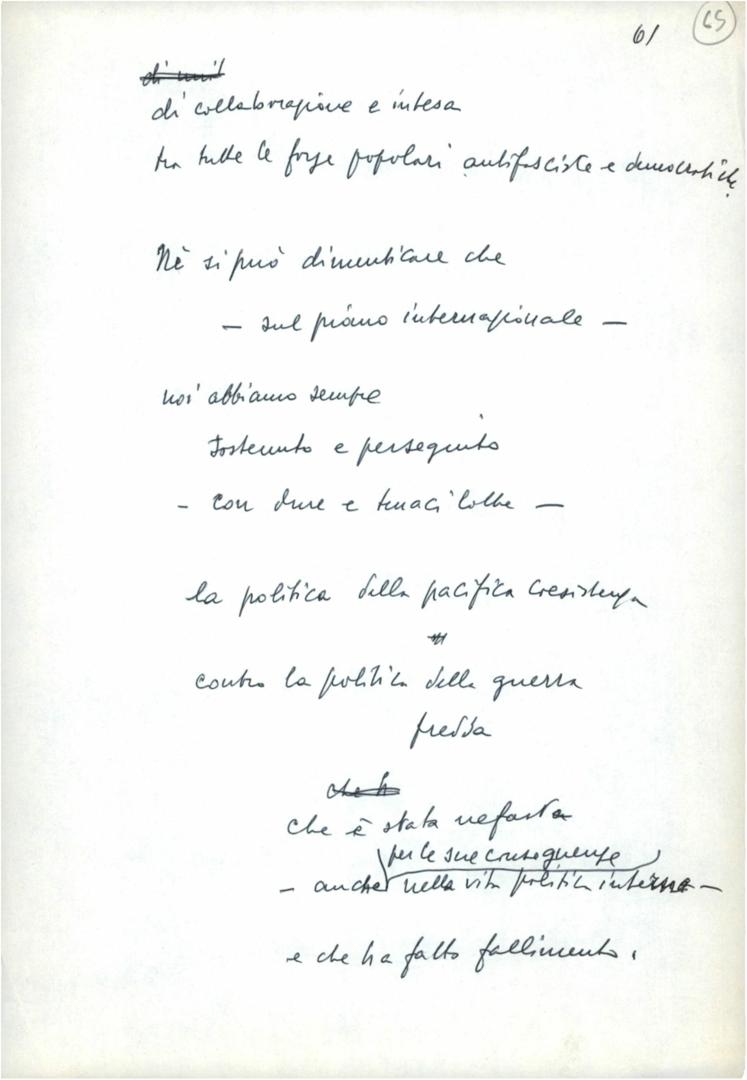 61 65
di unit
di collaborazione e intesa
tra tutte le forze popolari antifasciste e democratiche.
Nè si può dimenticare che
— sul piano internazionale —
noi abbiamo sempre
sostenuto e perseguito
- con dure e tenaci lotte —
la politica della pacifica coesistenza
contro la politica della guerra
fredda
che h
che è stata nefasta
per le sue conseguenze
- anche nella vita politica interna -
e che ha fatto fallimento.